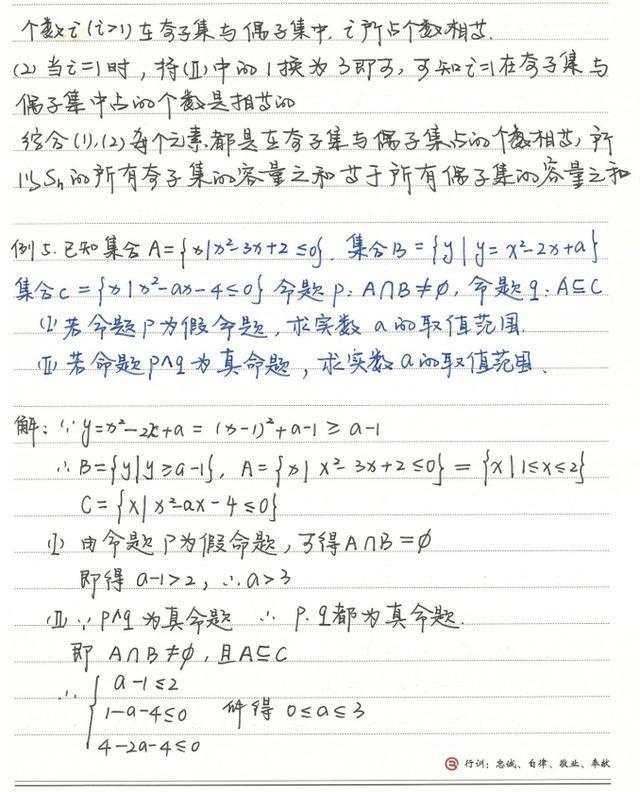 个数之(i>1)在奇子集与偶子集中, i所占个数相等.
(2) 当i=1时, 将(Ⅱ)中的1换为3即可, 可知i=1在奇子集与
偶子集中占的个数是相等的
综合(1),(2)每个元素都是在奇子集与偶子集占的个数相等, 所
以Sₙ的所有奇子集的容量之和等于所有偶子集的容量之和
例5. 已知集合A={x|x²-3x+2≤0}, 集合B={y|y=x²-2x+a}
集合C={x|x²-ax-4≤0} 命题p: A∩B≠∅, 命题q: A⊆C
(Ⅰ) 若命题P为假命题, 求实数a的取值范围.
(Ⅱ) 若命题p∧q为真命题, 求实数a的取值范围.
解: ∵ y=x²-2x+a = (x-1)²+a-1 ≥ a-1
∴ B={y|y≥a-1}, A={x|x²-3x+2≤0} = {x|1≤x≤2}
C={x|x²-ax-4≤0}
(Ⅰ) 由命题P为假命题, 可得A∩B=∅
即得 a-1>2, ∴a>3
(Ⅱ) ∵ p∧q为真命题 ∴ P.q都为真命题.
即 A∩B≠∅, 且A⊆C
∴ { a-1≤2
1-a-4≤0 解得 0≤a≤3
4-2a-4≤0
行训: 忠诚、自律、敬业、奉献